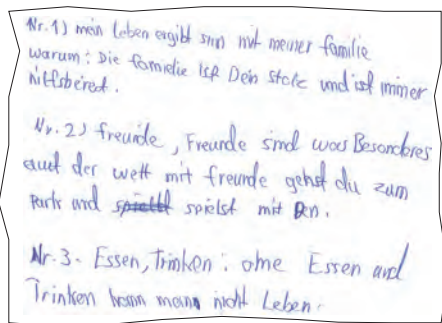 Nr. 1) mein Leben ergibt sinn mit meiner familie
warum: Die familie ist Dein stolz und ist immer
hilfsbereit.
Nr. 2) freunde, Freunde sind was Besonderes
auf der welt mit freunde gehst du zum
Park und spielst mit Den.
Nr. 3. Essen, Trinken: ohne Essen und
Trinken kann mann nicht Leben.